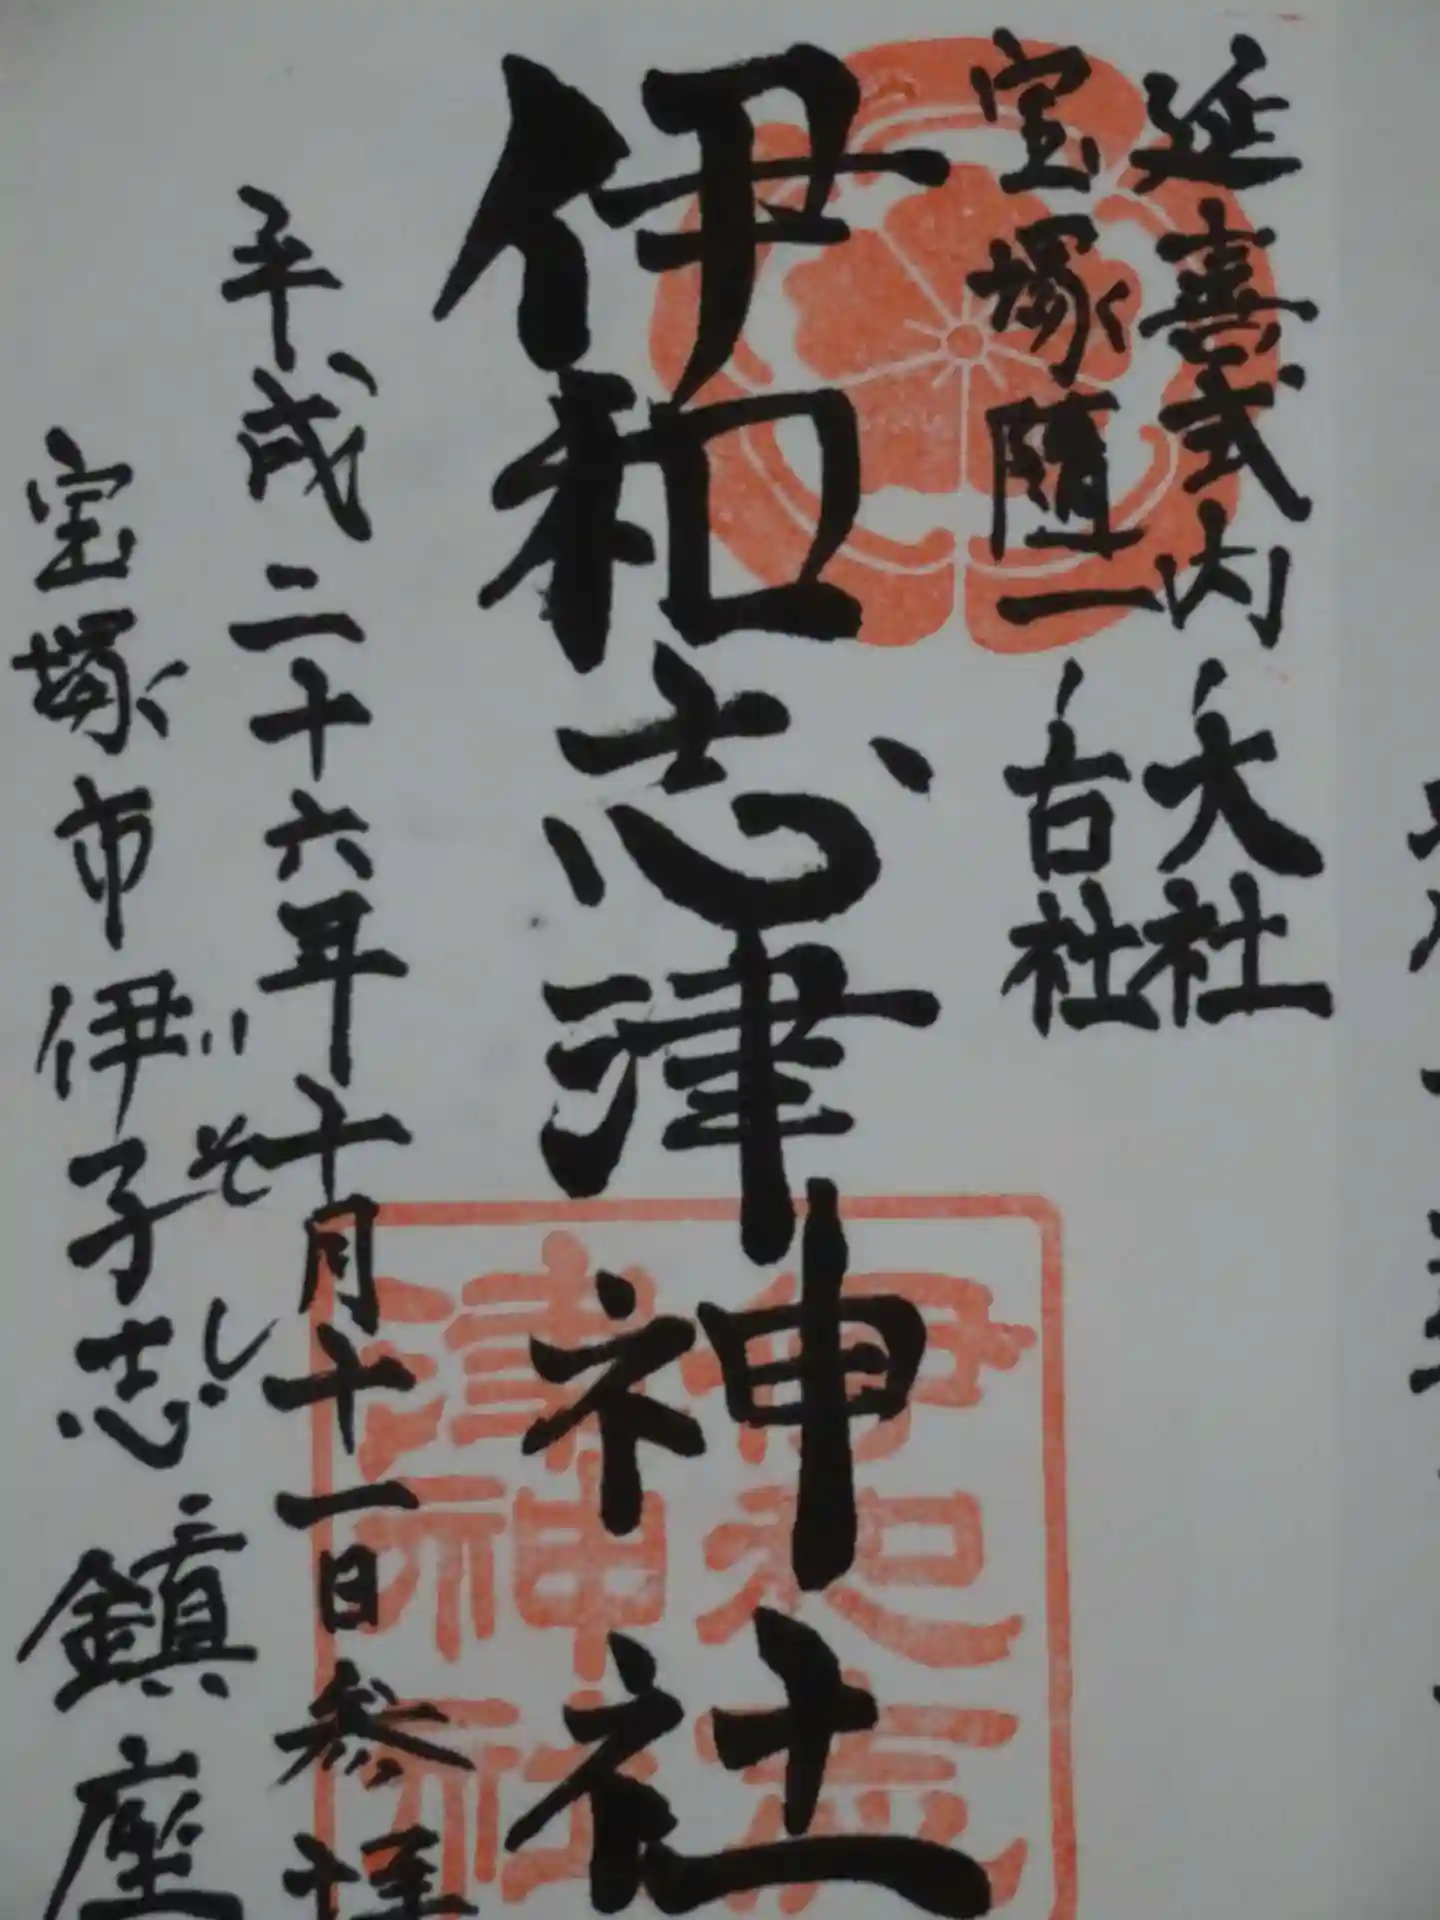 延喜式内大社
宝塚随一古社
伊和志津神社
平成二十六年十月十一日参拝
宝塚市伊子志鎮座
いそし
伊和志
津神社